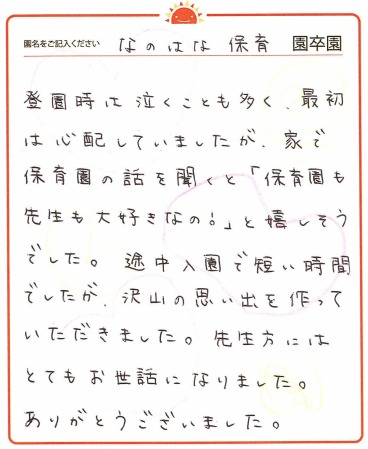 園名をご記入ください なのはな 保育 園卒園
登園時は泣くことも多く、最初
は心配していましたが、家で
保育園の話を聞くと「保育園も
先生も大好きなの!」と嬉しそう
でした。途中入園で短い時間
でしたが、沢山の思い出を作って
いただきました。先生方には
とてもお世話になりました。
ありがとうございました。